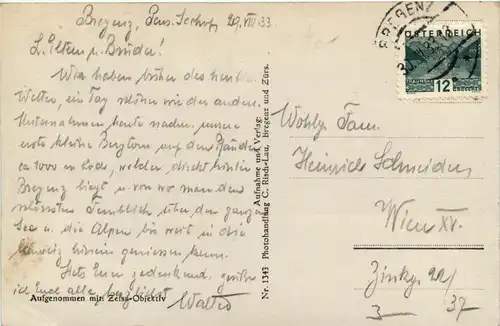 Bregenz, Pens. Seehof, 29. VIII 33
L. Eltern u. Bruder!
Wir haben bisher das
Wetter, ein Tag schöner wie der andere.
Unternahmen heute nachm. unsere
erste kleine Bergtour auf den Pfänder
ca 1000 m hoch, welcher direkt hinter
Bregenz liegt u. von wo man den
schönsten Fernblick über den ganzen
See u. die Alpen bis weit in die
Schweiz hinein geniessen kann.
Stets Euer gedenkend, grüßt
ich Euch alle herzlichst
Aufgenommen mit Zeiss-Objektiv
Nr. 1343 Photohandlung C. Risch-Lau, Bregenz und Zürs.
Aufnahme und Verlag:
BREGENZ
ÖSTERREICH
12
GROSCHEN
Wohlg. Fam.
Heinrich Schneider
Wien XV.
Zinkg. 22/
3 37